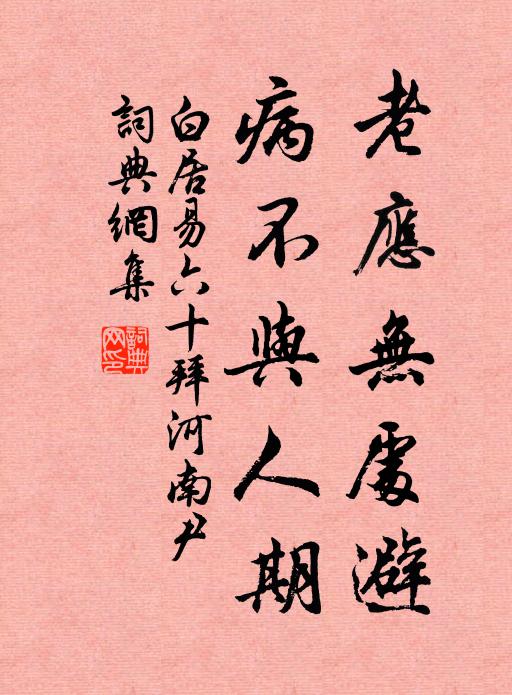 老應無處避
病不與人期
白居易六十拜河南尹
詞典網集
詞典網印